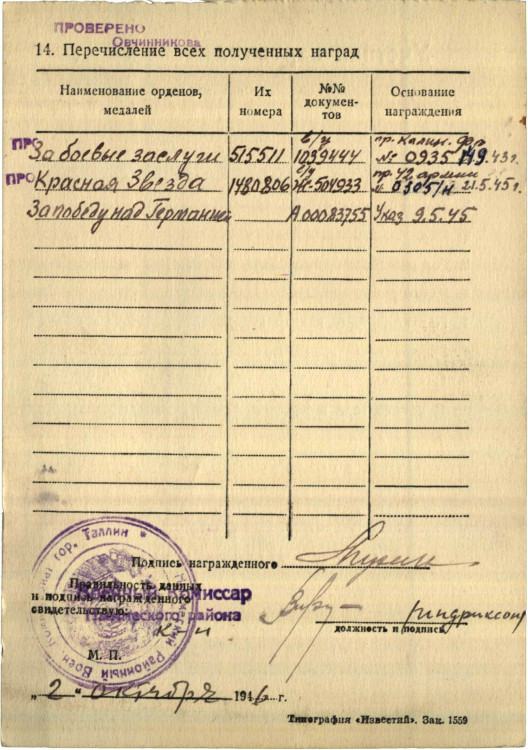 ПРОВЕРЕНО
Овчинникова
14. Перечисление всех полученных наград
Наименование орденов, медалей
Их номера
№№ документов
Основание награждения
ПРО За боевые заслуги 515511 в/у 1099444 пр. Калин. Фр. № 0935 43г.
ПРО Красная Звезда 1480806 о/у Ж-504933 пр. 42 армии № 0305/н 21.5.45г.
За победу над Германией А 00083755 Указ 9.5.45
Подпись награжденного
Правильность данных
и подпись награжденного
свидетельствую:
комиссар
района
должность и подпись
М. П.
гор. Таллин
Районный Воен.
„2“ октября 1946 г.
Типография «Известий». Зак. 1559